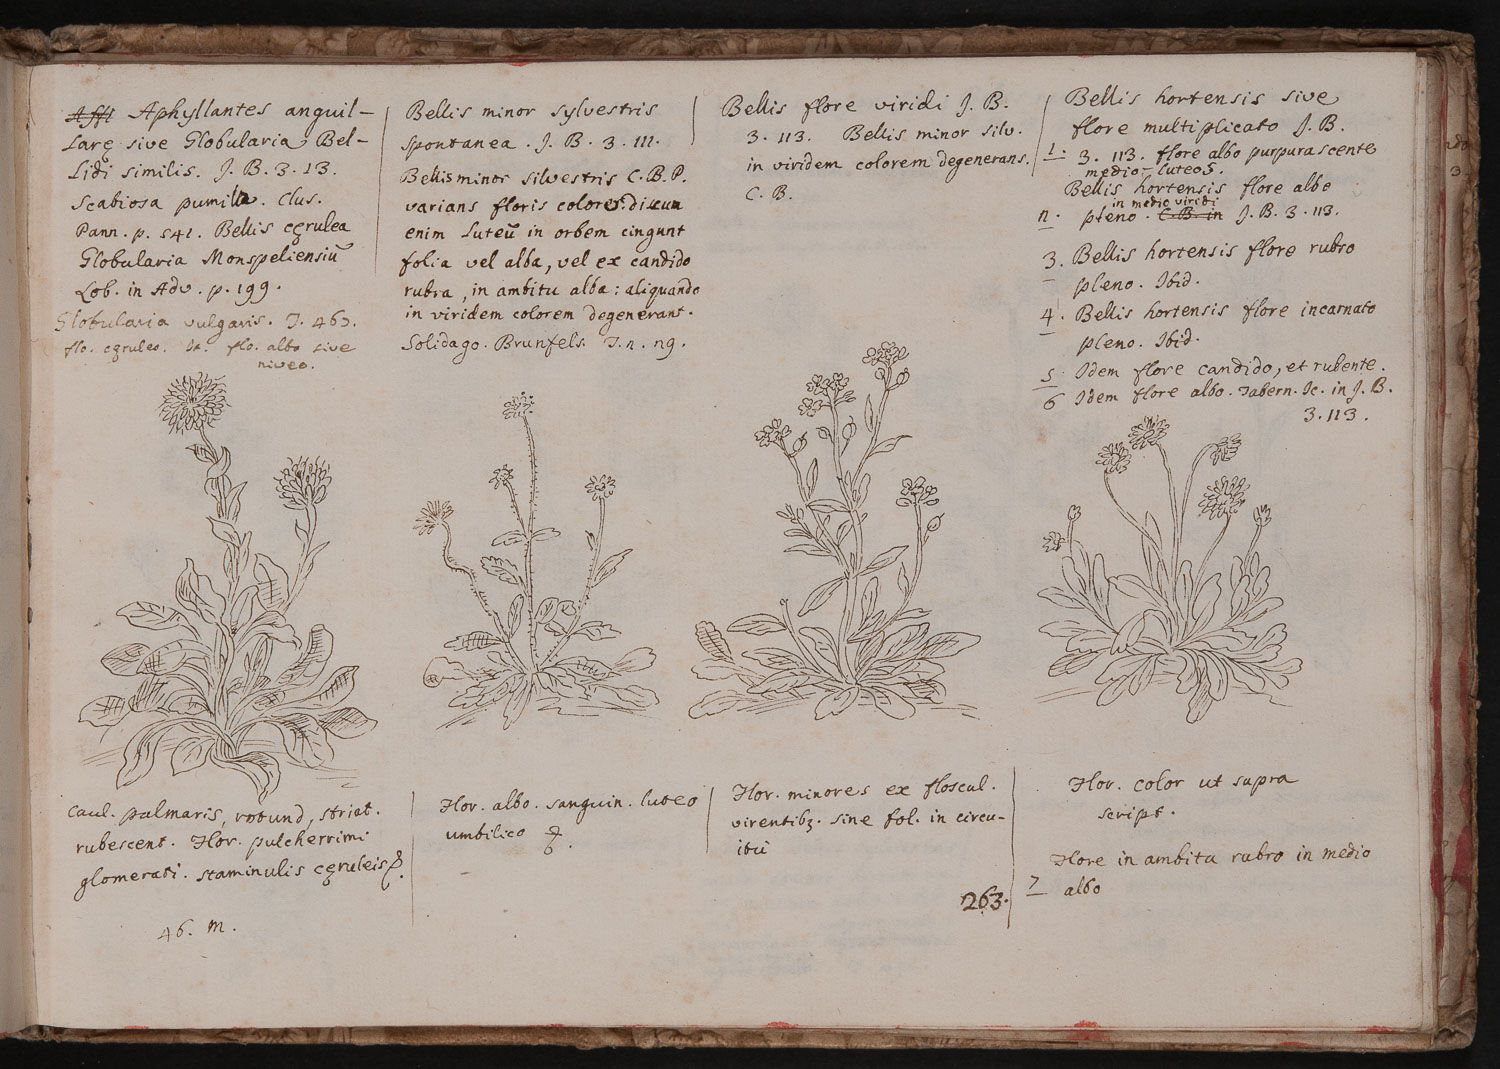 Aphyllantes anguil-
larę sive Globularia Bel-
lidi similis. J. B. 3. 13.
Scabiosa pumila. Clus.
Pann. p. 541. Bellis cęrulea
Globularia Monspeliensiũ
Lob. in Adv. p. 199.
Globularia vulgaris. T. 463.
flo. cęruleo. It. flo. albo sive
niveo.
Bellis minor sylvestris
spontanea. J. B. 3. 111.
Bellis minor silvestris C. B. P.
varians floris colores: discum
enim luteũ in orbem cingunt
folia vel alba, vel ex candido
rubra, in ambitu alba: aliquando
in viridem colorem degenerant.
Solidago. Brunfels. T. n. ng.
Bellis flore viridi J. B.
3. 113. Bellis minor silv.
in viridem colorem degenerans.
C. B.
Bellis hortensis sive
flore multiplicato J. B.
1. 3. 113. flore albo purpurascente
medio-luteos.
Bellis hortensis flore albo
in medio viridi
n. pleno. C. B. in J. B. 3. 113.
3. Bellis hortensis flore rubro
pleno. Ibid.
4. Bellis hortensis flore incarnato
pleno. Ibid.
5 Idem flore candido, et rubente.
6 Idem flore albo. Tabern. Ic. in J. B.
3. 113.
Caul. palmaris, rotund, striat.
rubescent. Flor. pulcherrimi
glomerati. staminulis cęruleis
46. m.
Flor. albo. sanguin. luteo
umbilico
Flor. minores ex floscul.
virentibꝫ. sine fol. in circu-
itũ
263.
Flor. color ut supra
script.
Flore in ambitu rubro in medio
7 albo